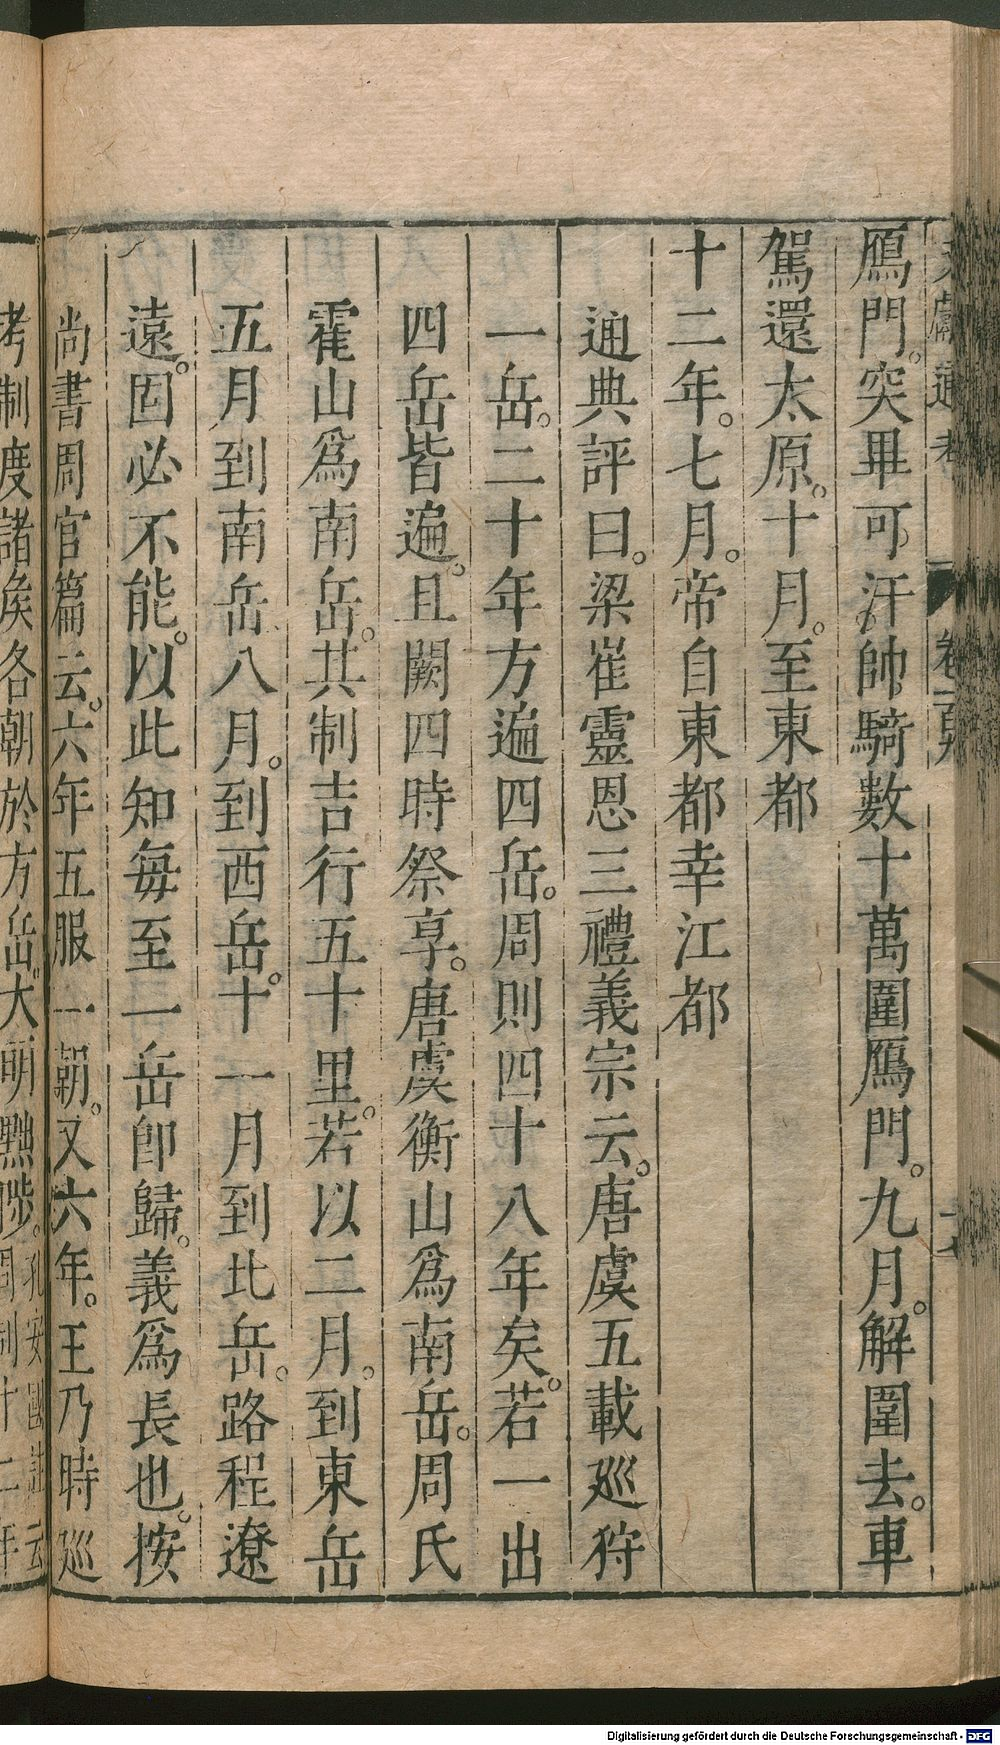 鴈門。突畢可汗帥騎數十萬圍鴈門。九月。解圍去。車
駕還太原。十月。至東都
十二年。七月。帝自東都幸江都
通典評曰。梁崔靈恩三禮義宗云。唐虞五載廵狩
一岳。二十年方遍四岳。周則四十八年矣。若一出
四岳皆遍。且闕四時祭享。唐虞衡山爲南岳。周氏
霍山爲南岳。共制吉行五十里。若以二月。到東岳
五月到南岳八月。到西岳。十一月到北岳。路程遼
遠。固必不能。以此知每至一岳卽歸。義爲長也。按
尚書周官篇云。六年五服一朝。又六年。王乃時廵
考制度諸矦各朝於方岳。大明黜陟。孔安國註云
Digitalisierung gefördert durch die Deutsche Forschungsgemeinschaft - DFG